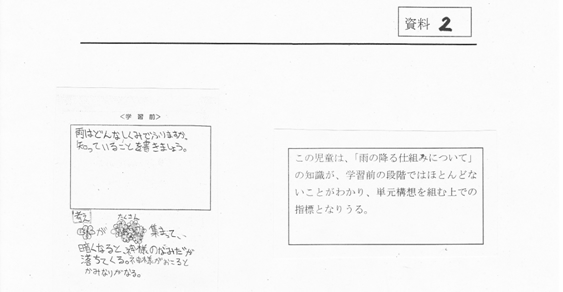 資料 2
<学習前>
雨はどんなしくみでふりますか。
知っていることを書きましょう。
考え
たくさん
が 集まって、
暗くなると、神様のなみだが
落ちてくる。神様がおこると
かみなりがなる。
この児童は、「雨の降る仕組みについて」
の知識が、学習前の段階ではほとんどな
いことがわかり、単元構想を組む上での
指標となりうる。